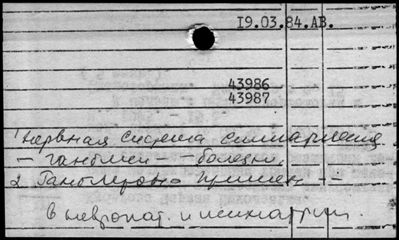 19.03.84.АВ.
43986
43987
1 Нервная система
— — болезни.
2 — примен. —
в невропат. и психиатрии.